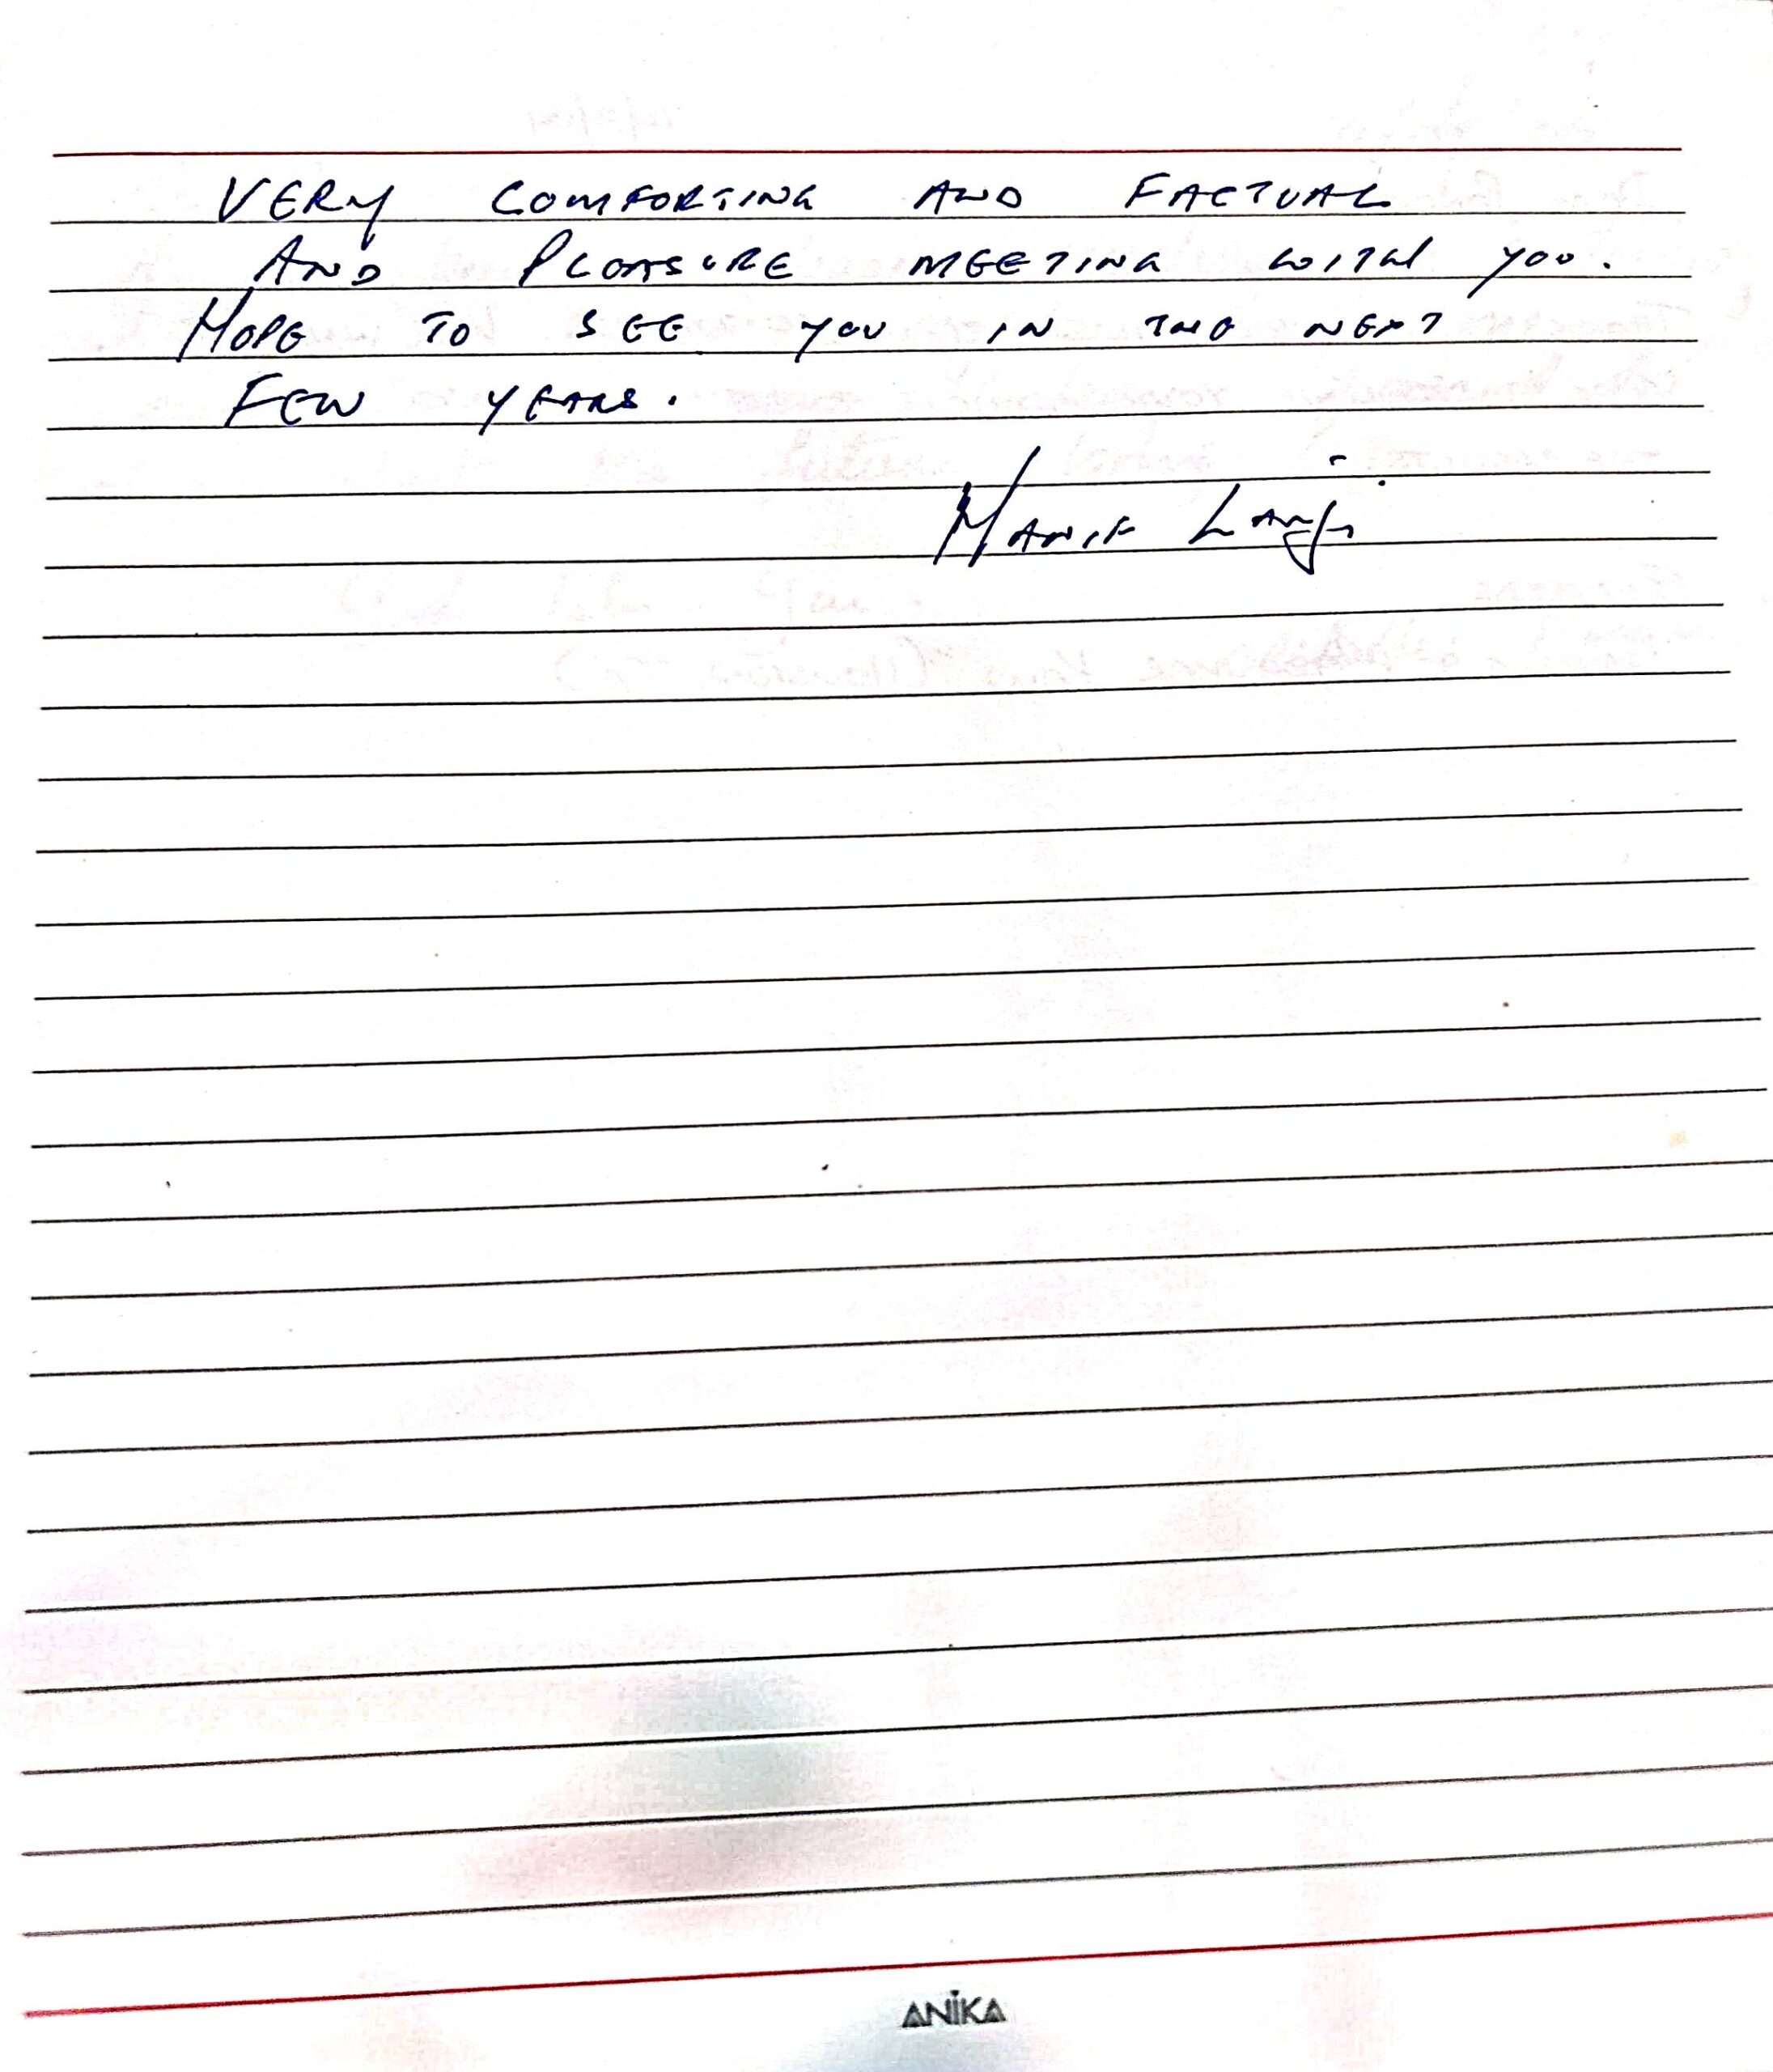 VERY COMFORTING AND FACTUAL
AND PLEASURE MEETING WITH YOU.
HOPE TO SEE YOU IN THE NEXT
FEW YEARS.
ANIKA